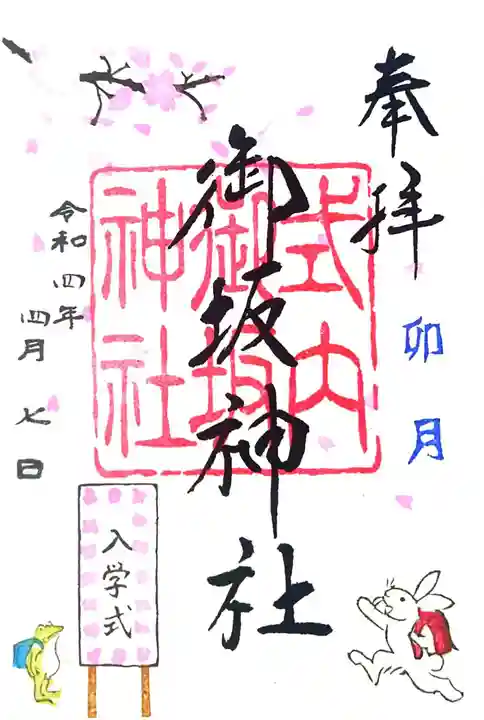 奉拝
卯月
式内
御坂
神社
御坂神社
令和四年
四月七日
入学式